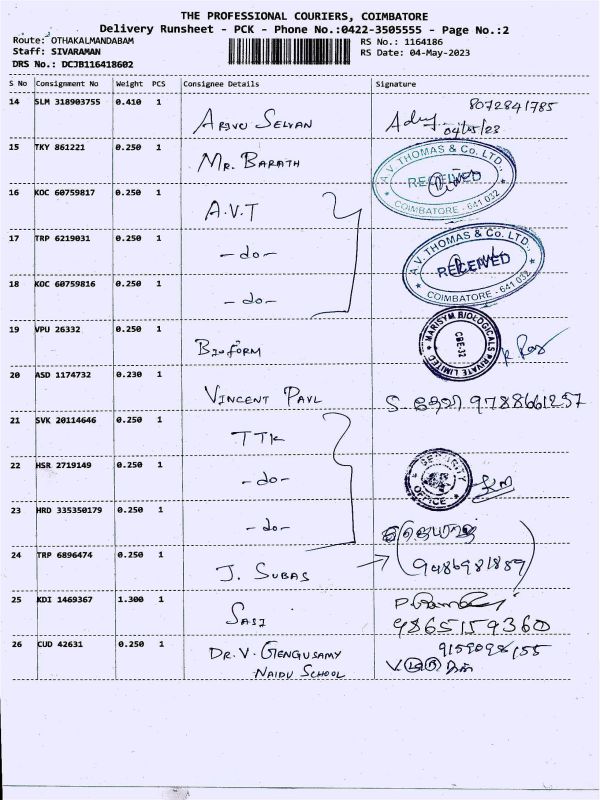 THE PROFESSIONAL COURIERS, COIMBATORE
Delivery Runsheet - PCK - Phone No.:0422-3505555 - Page No.:2
Route: OTHAKALMANDABAM
RS No.: 1164186
Staff: SIVARAMAN
RS Date: 04-May-2023
DRS No.: DCJB116418602
S No Consignment No Weight PCS Consignee Details Signature
14 SLM 318903755 0.410 1 ARIVU SELVAN 8072841785
04/05/23
15 TKY 861221 0.250 1 MR. BARATH
A.V. THOMAS & Co. LTD.,
RECEIVED
COIMBATORE - 641 032
16 KOC 60759817 0.250 1 A.V.T
17 TRP 6219031 0.250 1 -do-
A.V. THOMAS & Co. LTD.,
RECEIVED
COIMBATORE - 641 032
18 KOC 60759816 0.250 1 -do-
19 VPU 26332 0.250 1 BIOFORM
MARISYM BIOLOGICALS PRIVATE LIMITED
CBE-32
20 ASD 1174732 0.230 1 VINCENT PAUL 9788661257
21 SVK 20114646 0.250 1 TTK
22 HSR 2719149 0.250 1 -do-
SECURITY
OFFICE
23 HRD 335350179 0.250 1 -do-
24 TRP 6896474 0.250 1 J. SUBAS 9486981889
25 KDI 1469367 1.300 1 SASI
9865159360
26 CUD 42631 0.250 1 DR. V. GENGUSAMY
NAIDU SCHOOL